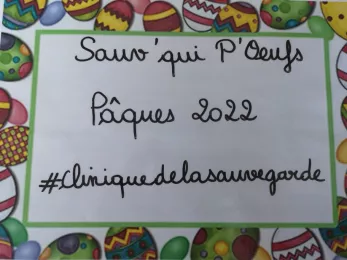 Sauv'qui P'Oeufs
Pâques 2022
#Cliniquedelasauvegarde